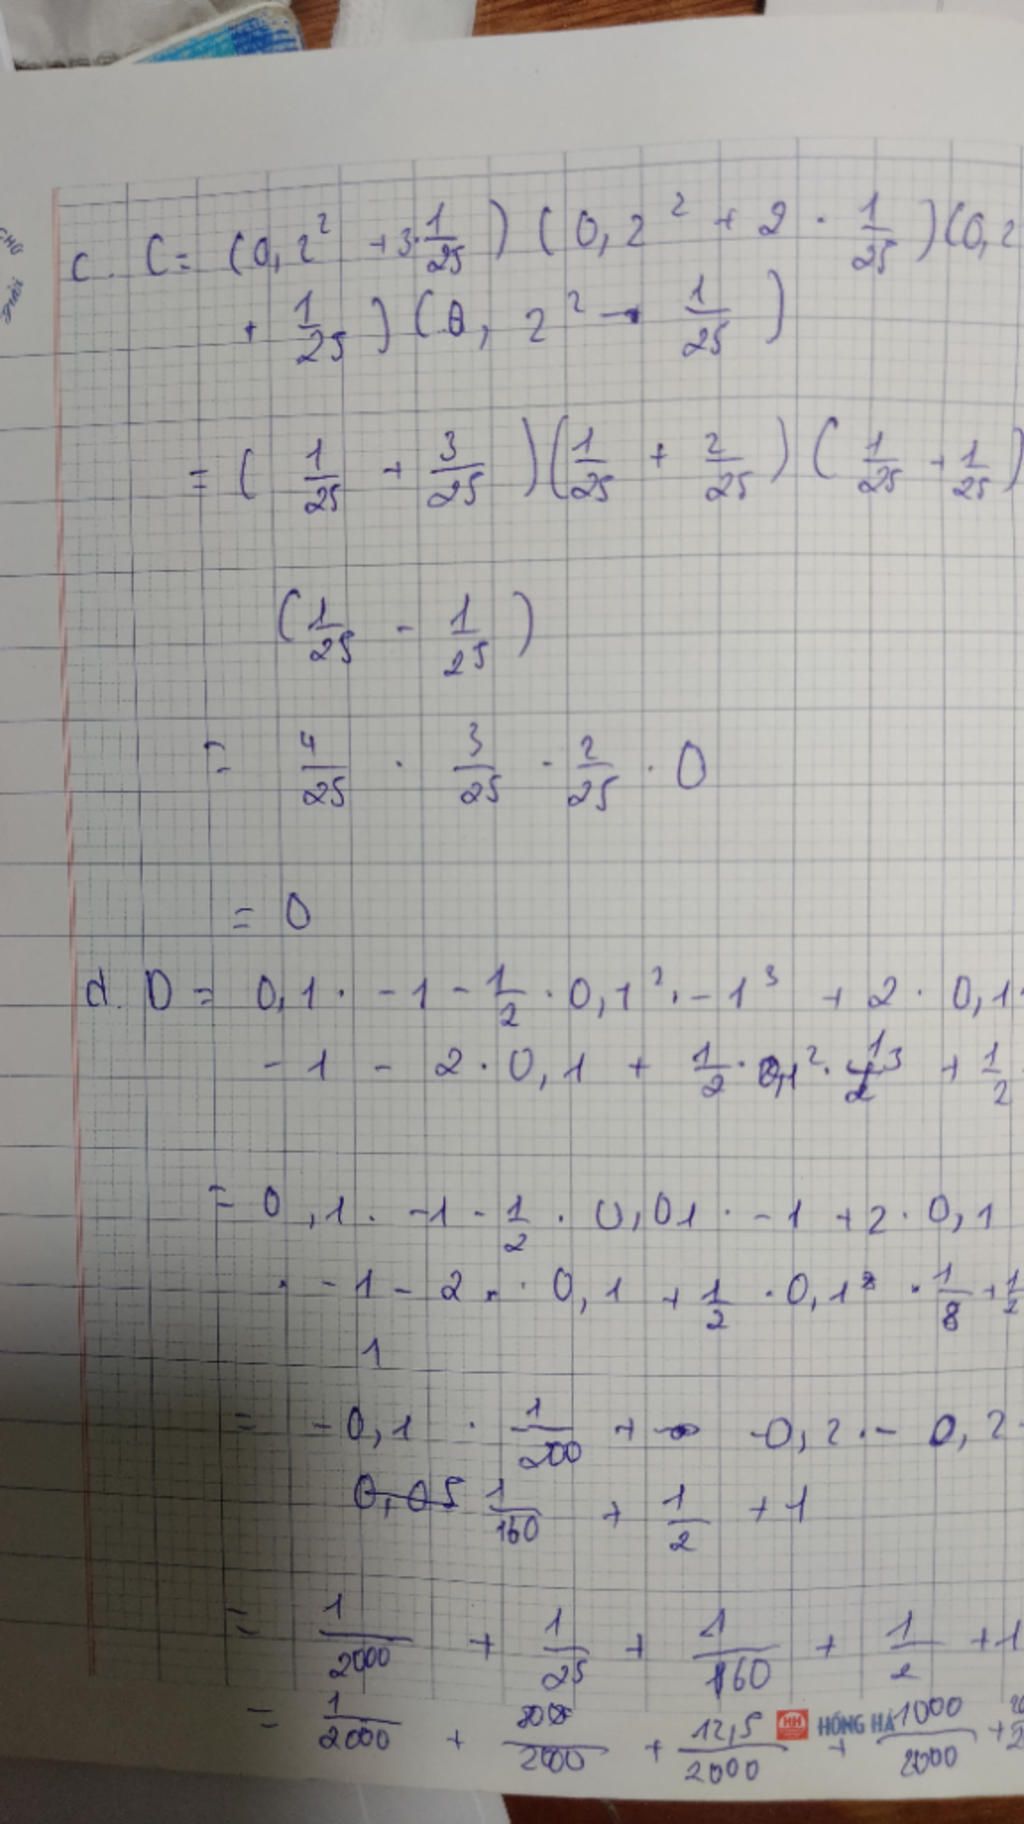 c. C = (0,2² + 3·1/25) (0,2² + 2 · 1/25)(0,2
+ 1/25) (0, 2² - 1/25)
= ( 1/25 + 3/25 )(1/25 + 2/25) ( 1/25 + 1/25)
(1/25 - 1/25)
= 4/25 · 3/25 · 2/25 . 0
= 0
d. D = 0,1 · -1 - 1/2 · 0,1² · -1³ + 2 · 0,1 ·
-1 - 2 · 0,1 + 1/2 · 0,1² · 1³ + 1/2
= 0,1 · -1 - 1/2 · 0,01 · -1 + 2 · 0,1
· -1 - 2 · 0,1 + 1/2 · 0,1² · 1/8 + 1/2
1
= -0,1 · 1/200 + -0,2 · - 0,2
0,05 1/160 + 1/2 + 1
= 1/2000 + 1/25 + 1/160 + 1/2 + 1
= 1/2000 + /2000 + 12,5/2000 + 1000/2000 +
HỒNG HÀ